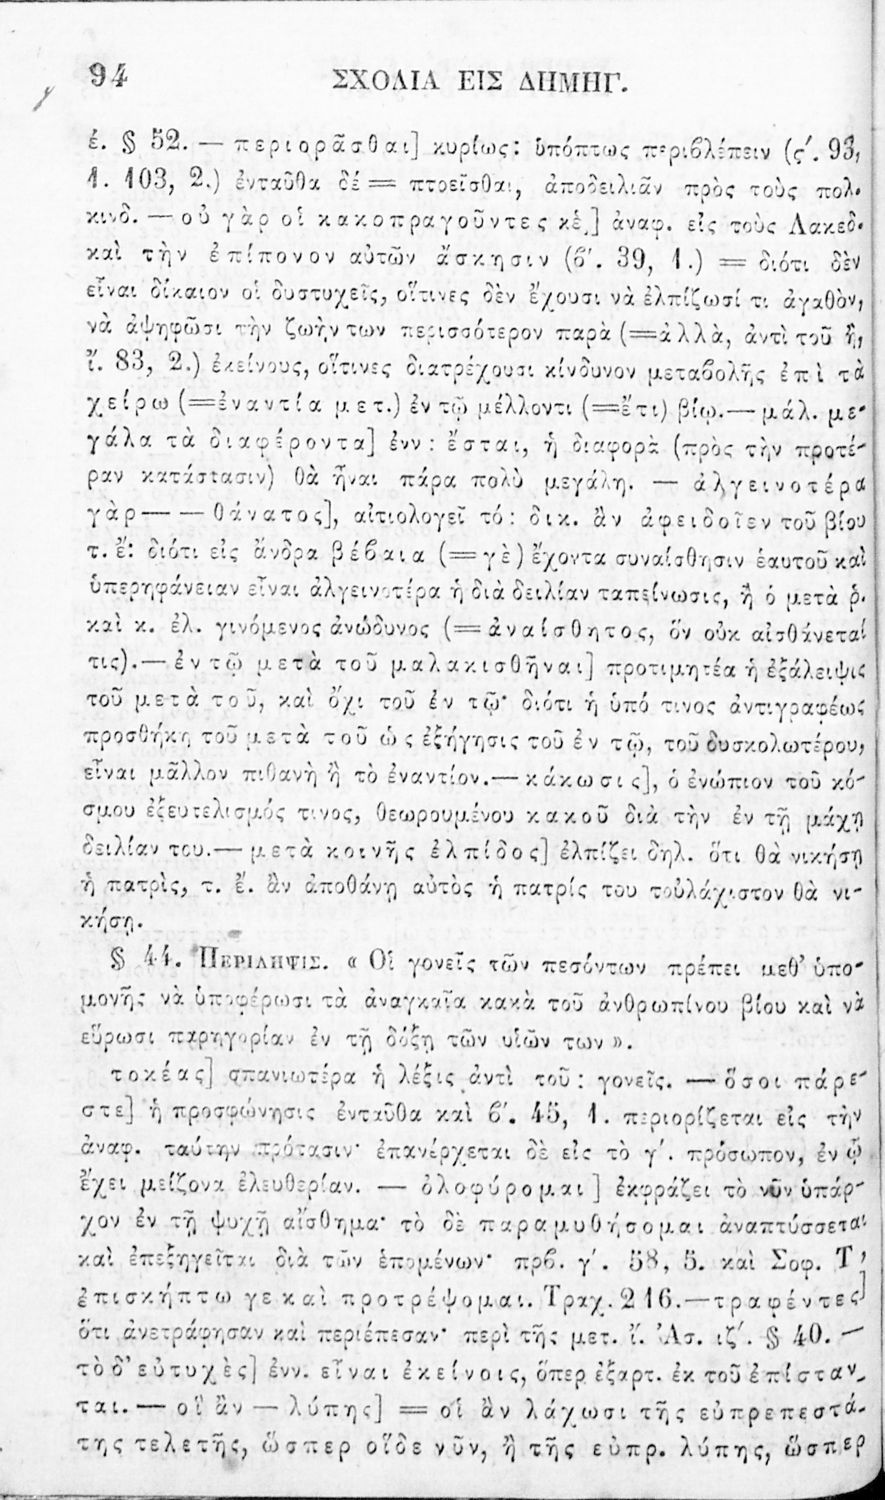 94 ΣΧΟΛΙΑ ΕΙΣ ΔΗΜΗΓ.
ἑ. § 52. — περιορᾶσθαι] κυρίως: ὑπόπτως περιβλέπειν (ς΄. 93,
1. 103, 2.) ἐνταῦθα δέ = πτοεῖσθαι, ἀποδειλιᾶν πρὸς τοὺς πολ.
κινδ. — οὐ γὰρ οἱ κακοπραγοῦντες κἑ.] ἀναφ. εἰς τοὺς Λακεδ.
καὶ τὴν ἐπίπονον αὐτῶν ἄσκησιν (β΄. 39, 1.) = διότι δὲν
εἶναι δίκαιον οἱ δυστυχεῖς, οἵτινες δὲν ἔχουσι νὰ ἐλπίζωσί τι ἀγαθὸν,
νὰ ἀψηφῶσι τὴν ζωὴν των περισσότερον παρὰ (=ἀλλὰ, ἀντὶ τοῦ ἢ,
ἴ. 83, 2.) ἐκείνους, οἵτινες διατρέχουσι κίνδυνον μεταβολῆς ἐπὶ τὰ
χείρω (=ἐναντία μετ.) ἐν τῷ μέλλοντι (=ἔτι) βίῳ.— μάλ. με-
γάλα τὰ διαφέροντα] ἐνν: ἔσται, ἡ διαφορὰ (πρὸς τὴν προτέ-
ραν κατάστασιν) θὰ ἦναι πάρα πολὺ μεγάλη. — ἀλγεινοτέρα
γὰρ — — θάνατος], αἰτιολογεῖ τό: δικ. ἂν ἀφειδοῖεν τοῦ βίου
τ. ἔ: διότι εἰς ἄνδρα βέβαια (=γὲ) ἔχοντα συναίσθησιν ἑαυτοῦ καὶ
ὑπερηφάνειαν εἶναι ἀλγεινοτέρα ἡ διὰ δειλίαν ταπείνωσις, ἢ ὁ μετὰ ῥ.
καὶ κ. ἐλ. γινόμενος ἀνώδυνος (=ἀναίσθητος, ὅν οὐκ αἰσθάνεταί
τις).— ἐν τῷ μετὰ τοῦ μαλακισθῆναι] προτιμητέα ἡ ἐξάλειψις
τοῦ μετὰ τοῦ, καὶ ὄχι τοῦ ἐν τῷ· διότι ἡ ὑπό τινος ἀντιγραφέως
προσθήκη τοῦ μετὰ τοῦ ὡς ἐξήγησις τοῦ ἐν τῷ, τοῦ δυσκολωτέρου,
εἶναι μᾶλλον πιθανὴ ἢ τὸ ἐναντίον.— κάκωσις], ὁ ἐνώπιον τοῦ κό-
σμου ἐξευτελισμός τινος, θεωρουμένου κακοῦ διὰ τὴν ἐν τῇ μάχῃ
δειλίαν του.— μετὰ κοινῆς ἐλπίδος] ἐλπίζει δηλ. ὅτι θὰ νικήσῃ
ἡ πατρὶς, τ. ἔ. ἂν ἀποθάνῃ αὐτὸς ἡ πατρίς του τοὐλάχιστον θὰ νι-
κήσῃ.
§ 44. Περιληψις. « Οἱ γονεῖς τῶν πεσόντων πρέπει μεθ’ ὑπο-
μονῆς νὰ ὑποφέρωσι τὰ ἀναγκαῖα κακὰ τοῦ ἀνθρωπίνου βίου καὶ νὰ
εὕρωσι παρηγορίαν ἐν τῇ δόξῃ τῶν υἱῶν των ».
τοκέας] σπανιωτέρα ἡ λέξις ἀντὶ τοῦ: γονεῖς. — ὅσοι πάρε-
στε] ἡ προσφώνησις ἐνταῦθα καὶ β΄. 45, 1. περιορίζεται εἰς τὴν
ἀναφ. ταύτην πρότασιν· ἐπανέρχεται δὲ εἰς τὸ γ΄. πρόσωπον, ἐν ᾧ
ἔχει μείζονα ἐλευθερίαν. — ὀλοφύρομαι] ἐκφράζει τὸ νῦν ὑπάρ-
χον ἐν τῇ ψυχῇ αἴσθημα· τὸ δὲ παραμυθήσομαι ἀναπτύσσεται
καὶ ἐπεξηγεῖται διὰ τῶν ἑπομένων· πρβ. γ΄. 58, 5. καὶ Σοφ. Τ,
ἐπισκήπτω γε καὶ προτρέψομαι. Τραχ. 216.—τραφέντες]
ὅτι ἀνετράφησαν καὶ περιέπεσαν· περὶ τῆς μετ. ἴ. Ἀσ. ιζ΄. § 40. —
τὸ δ’ εὐτυχὲς] ἐνν. εἶναι ἐκείνοις, ὅπερ ἐξαρτ. ἐκ τοῦ ἐπίσταν-
ται. — οἳ ἂν — λύπης] = οἳ ἂν λάχωσι τῆς εὐπρεπεστά-
της τελετῆς, ὥσπερ οἵδε νῦν, ἢ τῆς εὐπρ. λύπης, ὥσπερ